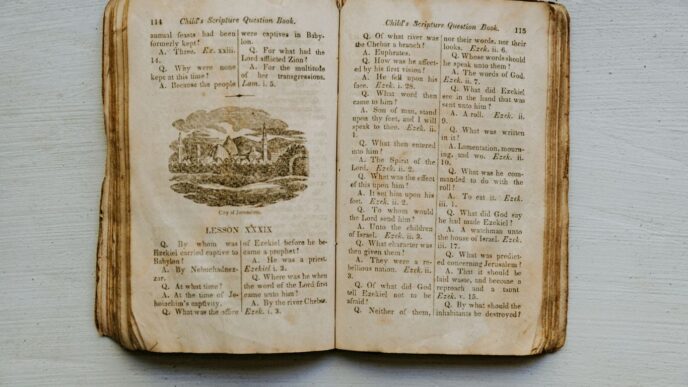 114 Child's Scripture Question Book.
annual feasts had been
formerly kept?
A. Three. Ex. xxiii.
14.
Q. Why were none
kept at this time?
A. Because the people
were captives in Baby-
lon.
Q. For what had the
Lord afflicted Zion?
A. For the multitude
of her transgressions.
Lam. i. 5.
City of Jerusalem.
LESSON XXXIX
Q. By whom was
Ezekiel carried captive to
Babylon?
A. By Nebuchadnez-
zar.
Q. At what time?
A. At the time of Je-
hoiachim's captivity.
Q. What was the office
of Ezekiel before he be-
came a prophet?
A. He was a priest.
Ezekiel i. 3.
Q. Where was he when
the word of the Lord first
came unto him?
A. By the river Chebar.
Ezek. i. 3.
Child's Scripture Question Book. 115
Q. Of what river was
the Chebar a branch?
A. Euphrates.
Q. How was he affect-
ed by his first vision?
A. He fell upon his
face. Ezek. i. 28.
Q. What word then
came to him?
A. Son of man, stand
upon thy feet, and I will
speak to thee. Ezek. ii.
1.
Q. What then entered
into him?
A. The Spirit of the
Lord. Ezek. ii. 2.
Q. What was the effect
of this upon him?
A. It set him upon his
feet. Ezek. ii. 2.
Q. To whom would
the Lord send him?
A. Unto the children
of Israel. Ezek. ii. 3.
Q. What character was
then given them?
A. They were a re-
bellious nation. Ezek. ii.
3.
Q. Of what did God
tell Ezekiel not to be
afraid?
Q. Neither of them,
nor their words, nor their
looks. Ezek. ii. 6.
Q. Whose words should
he speak unto them?
A. The words of God.
Ezek. ii. 7.
Q. What did Ezekiel
see in the hand that was
sent unto him?
A. A roll. Ezek. ii.
9.
Q. What was written
in it?
A. Lamentation, mourn-
ing, and wo. Ezek. ii.
10.
Q. What was he com-
manded to do with the
roll?
A. To eat it. Ezek.
iii. 1.
Q. What did God say
he had made Ezekiel?
A. A watchman unto
the house of Israel. Ezek.
iii. 17.
Q. What was predict-
ed concerning Jerusalem?
A. That it should be
laid waste, and become a
reproach and a taunt
Ezek. v. 15.
Q. By what should the
inhabitants be destroyed?